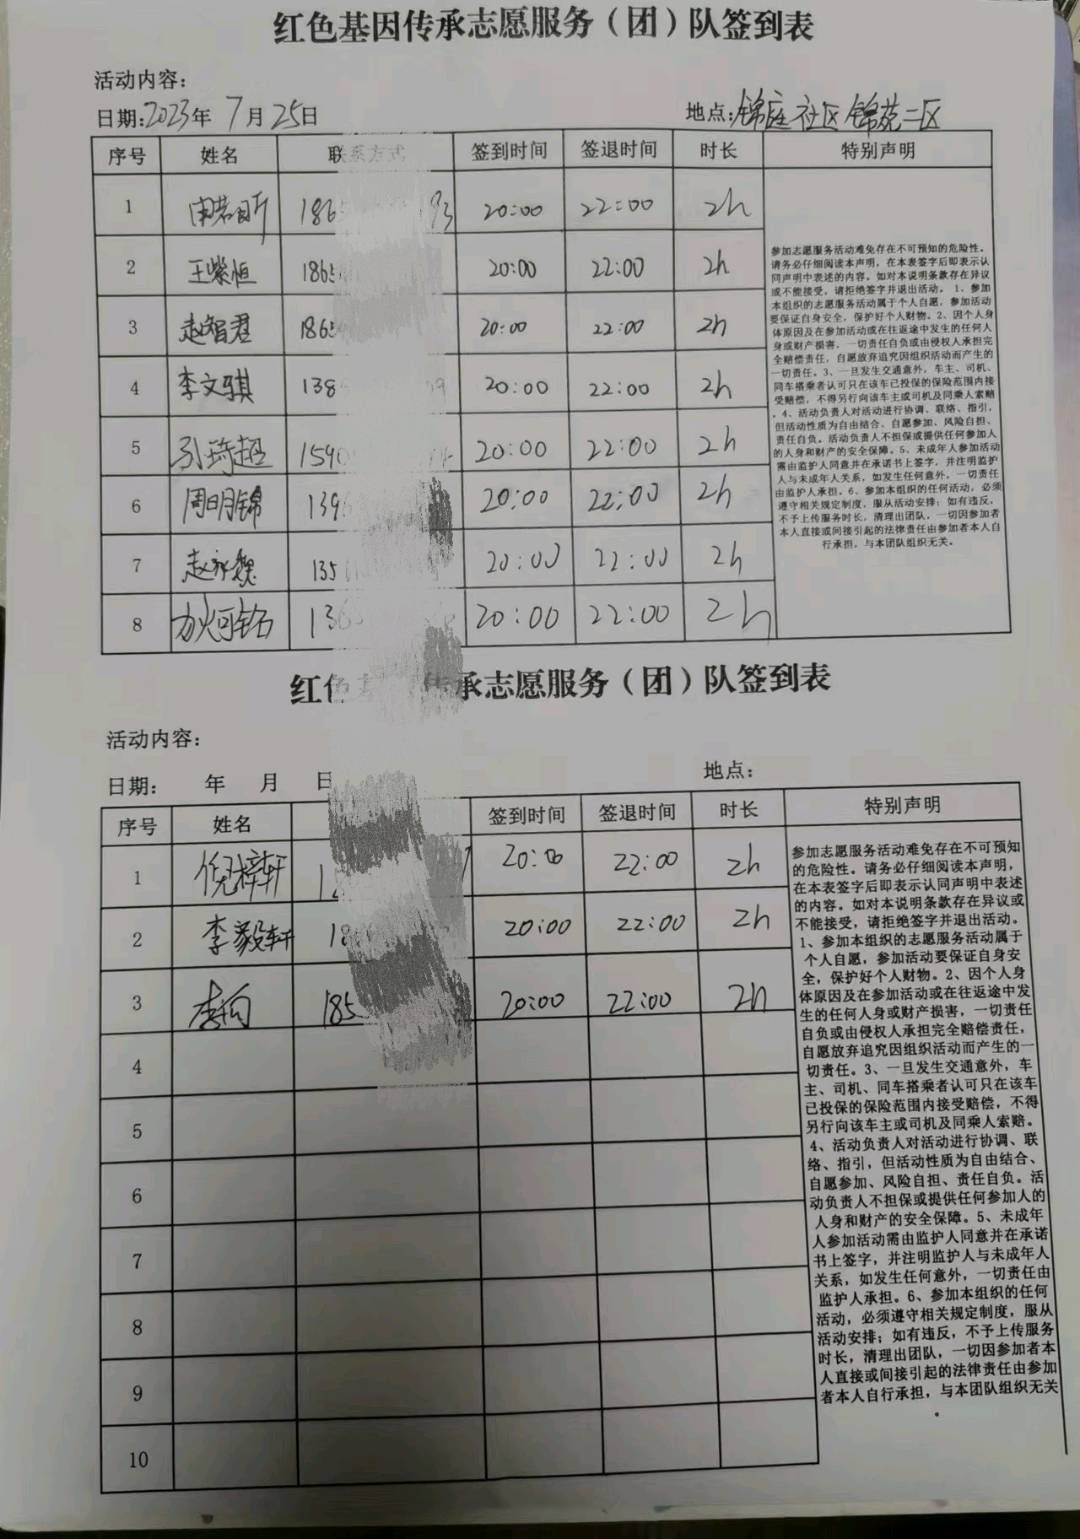 红色基因传承志愿服务（团）队签到表
活动内容：
日期：2023年 7月25日 地点：锦庭社区锦苑二区
序号 姓名 联系方式 签到时间 签退时间 时长 特别声明
1 186 93 20:00 22:00 2h
2 王紫恒 1865 20:00 22:00 2h
3 赵智君 1865 20:00 22:00 2h
4 李文骐 138 09 20:00 22:00 2h
5 孔琦超 1590 20:00 22:00 2h
6 周明锦 139 20:00 22:00 2h
7 135 20:00 22:00 2h
8 136 20:00 22:00 2h
参加志愿服务活动难免存在不可预知的危险性。
请务必仔细阅读本声明，在本表签字后即表示认
同声明中表述的内容。如对本说明条款存在异议
或不能接受，请拒绝签字并退出活动。 1、参加
本组织的志愿服务活动属于个人自愿，参加活动
要保证自身安全，保护好个人财物。2、因个人身
体原因及在参加活动或在往返途中发生的任何人
身或财产损害，一切责任自负或由侵权人承担完
全赔偿责任，自愿放弃追究因组织活动而产生的
一切责任。3、一旦发生交通意外，车主、司机、
同车搭乘者认可只在该车已投保的保险范围内接
受赔偿，不得另行向该车主或司机及同乘人索赔
。4、活动负责人对活动进行协调、联络、指引，
但活动性质为自由结合、自愿参加、风险自担、
责任自负。活动负责人不担保或提供任何参加人
的人身和财产的安全保障。5、未成年人参加活动
需由监护人同意并在承诺书上签字，并注明监护
人与未成年人关系，如发生任何意外，一切责任
由监护人承担。6、参加本组织的任何活动，必须
遵守相关规定制度，服从活动安排；如有违反，
不予上传服务时长，清理出团队，一切因参加者
本人直接或间接引起的法律责任由参加者本人自
行承担，与本团队组织无关。
红色基 传承志愿服务（团）队签到表
活动内容：
日期： 年 月 日 地点：
序号 姓名 签到时间 签退时间 时长 特别声明
1 倪梓轩 1 20:00 22:00 2h
2 李毅轩 18 20:00 22:00 2h
3 185 20:00 22:00 2h
4
5
6
7
8
9
10
参加志愿服务活动难免存在不可预知
的危险性。请务必仔细阅读本声明，
在本表签字后即表示认同声明中表述
的内容。如对本说明条款存在异议或
不能接受，请拒绝签字并退出活动。
1、参加本组织的志愿服务活动属于
个人自愿，参加活动要保证自身安
全，保护好个人财物。2、因个人身
体原因及在参加活动或在往返途中发
生的任何人身或财产损害，一切责任
自负或由侵权人承担完全赔偿责任，
自愿放弃追究因组织活动而产生的一
切责任。3、一旦发生交通意外，车
主、司机、同车搭乘者认可只在该车
已投保的保险范围内接受赔偿，不得
另行向该车主或司机及同乘人索赔。
4、活动负责人对活动进行协调、联
络、指引，但活动性质为自由结合、
自愿参加、风险自担、责任自负。活
动负责人不担保或提供任何参加人的
人身和财产的安全保障。5、未成年
人参加活动需由监护人同意并在承诺
书上签字，并注明监护人与未成年人
关系，如发生任何意外，一切责任由
监护人承担。6、参加本组织的任何
活动，必须遵守相关规定制度，服从
活动安排；如有违反，不予上传服务
时长，清理出团队，一切因参加者本
人直接或间接引起的法律责任由参加
者本人自行承担，与本团队组织无关